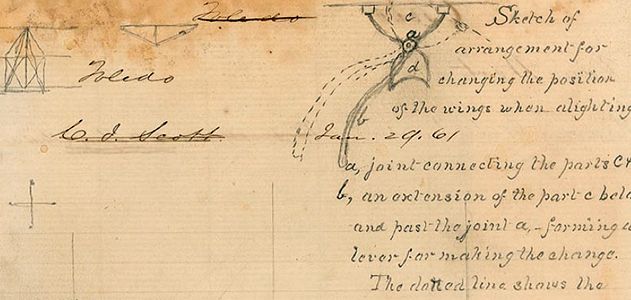 Toledo
Sketch of
arrangement for
changing the position
of the wings when alighting
Toledo
C. J. Scott.
Jan. 29. 61
c
a
d
b
a, joint connecting the parts C &
b, an extension of the part c
and past the joint a, - forming a
lever for making the change.
The dotted line shows the